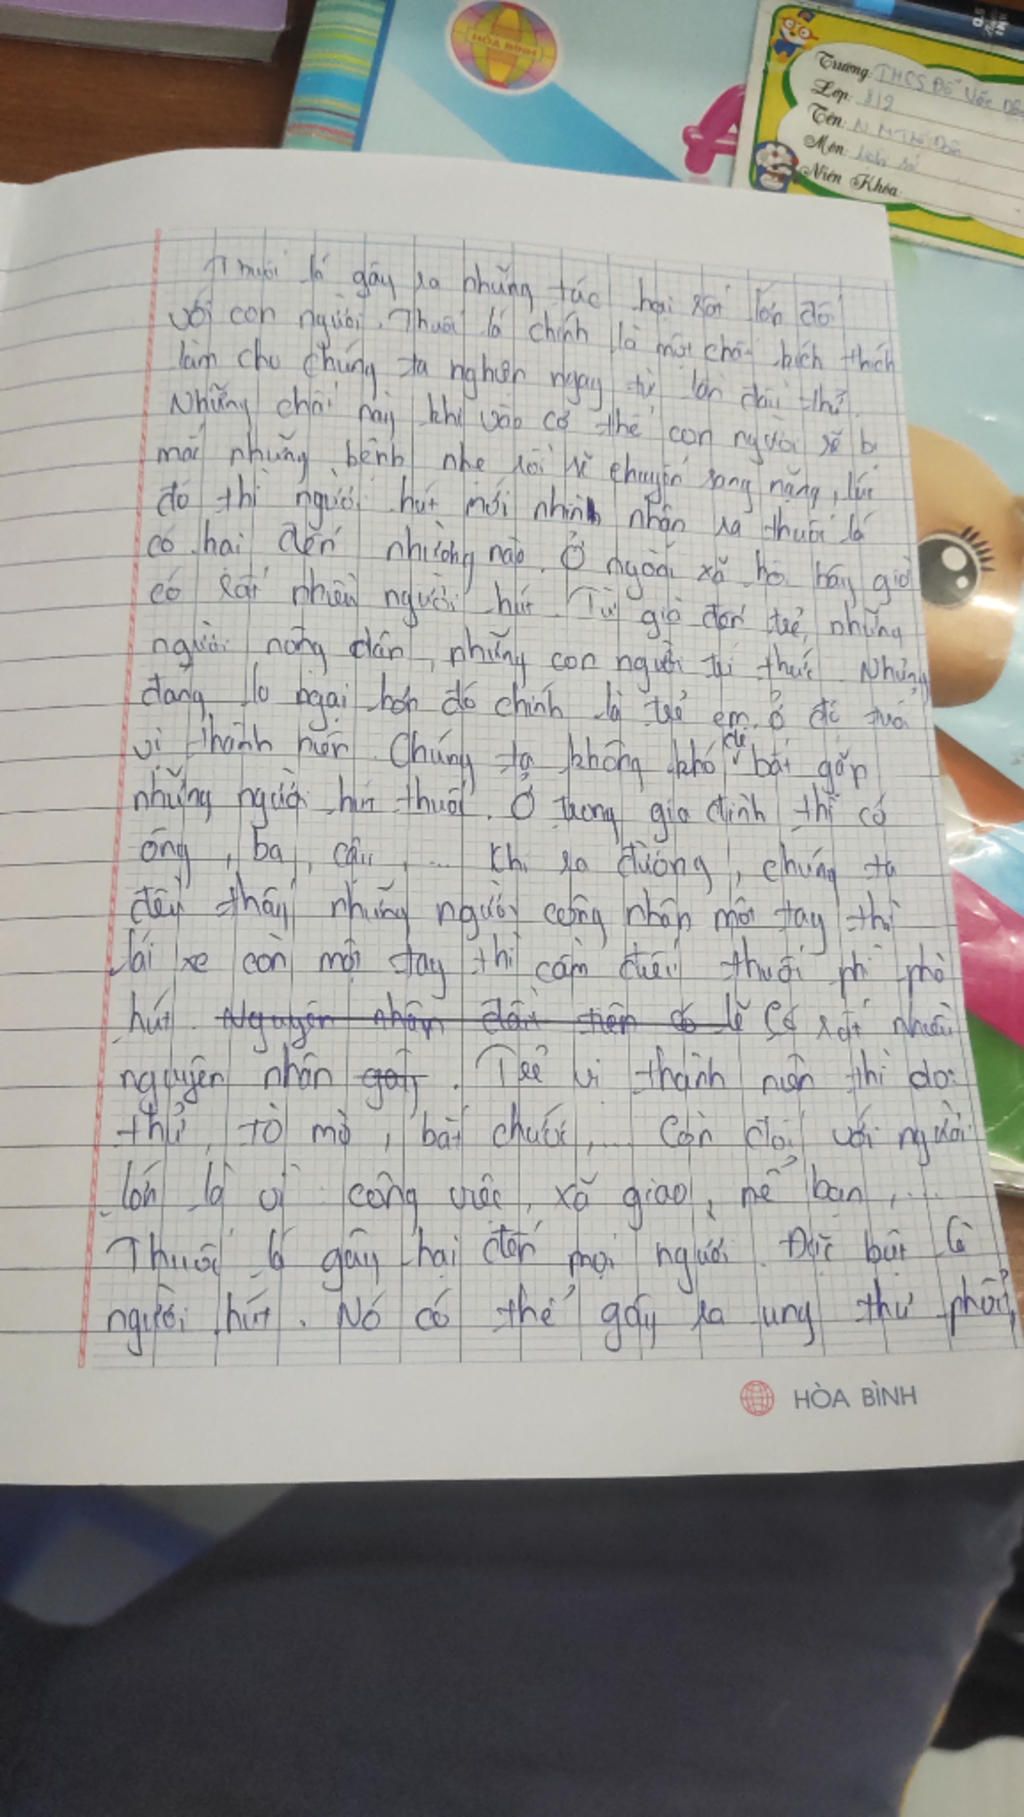 HÒA BÌNH
A
Trường: THCS
Lớp: 8/9
Tên:
Môn: Lịch sử
Niên Khóa:
Thuốc lá gây ra những tác hại rất lớn đối
với con người. Thuốc lá chính là một chất kích thích
làm cho chúng ta nghiện ngay từ lần đầu thử.
Những chất này khi vào cơ thể con người sẽ bị
mắc những bệnh nhẹ rồi sẽ chuyển sang nặng, lúc
đó thì người hút mới nhìn nhận ra thuốc lá
có hại đến nhường nào. Ở ngoài xã hội bây giờ
có rất nhiều người hút. Từ già đến trẻ, những
người nông dân, những con người trí thức. Nhưng
đáng lo ngại hơn đó chính là trẻ em ở độ tuổi
vị thành niên. Chúng ta không khó để bắt gặp
những người hút thuốc. Ở trong gia đình thì có
ông, ba, cậu, ... Khi ra đường, chúng ta
đều thấy những người công nhân một tay thì
lái xe còn một tay thì cầm điếu thuốc phì phò
hút. Nguyên nhân đầu tiên có lẽ Có rất nhiều
nguyên nhân gây. Trẻ vị thành niên thì do:
thử, tò mò, bắt chước,... Còn đối với người
lớn là vì công việc, xã giao, nể bạn,...
Thuốc lá gây hại đến mọi người. Đặc biệt là
người hút. Nó có thể gây ra ung thư phổi,
HÒA BÌNH